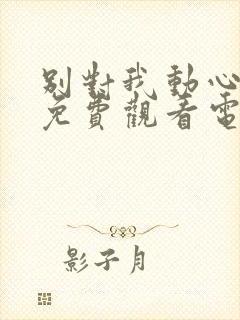 別對我動心
免費觀看電
影子月